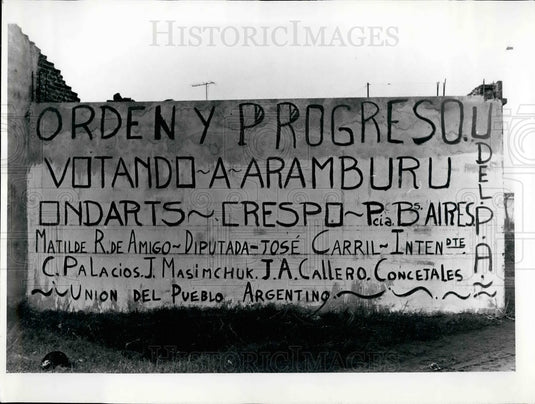 HISTORIC IMAGES
ORDEN Y PROGRESO.
VOTANDO ~ A ~ ARAMBURU
ONDARTS ~ CRESPO ~ PCIA BS. AIRES
MATILDE R. DE AMIGO ~ DIPUTADA ~ JOSÉ CARRIL ~ INTENDTE
C. PALACIOS. J. MASIMCHUK. J. A. CALLERO. CONCETALES
~ UNION DEL PUEBLO ARGENTINO. ~
UDELPA